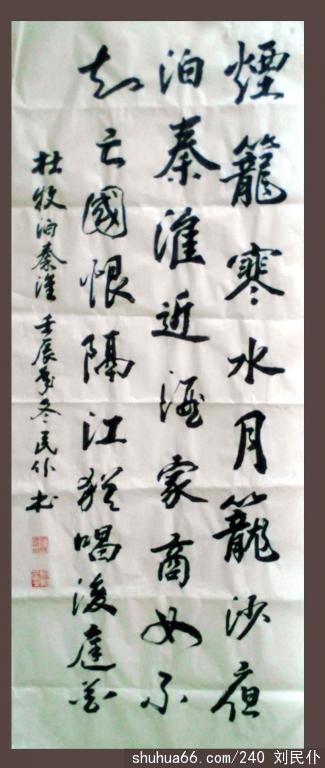 煙籠寒水月籠沙夜
泊秦淮近酒家商女不
知亡國恨隔江猶唱後庭花
杜牧泊秦淮 壬辰年冬 民仆书
shuhua66.com/240 刘民仆